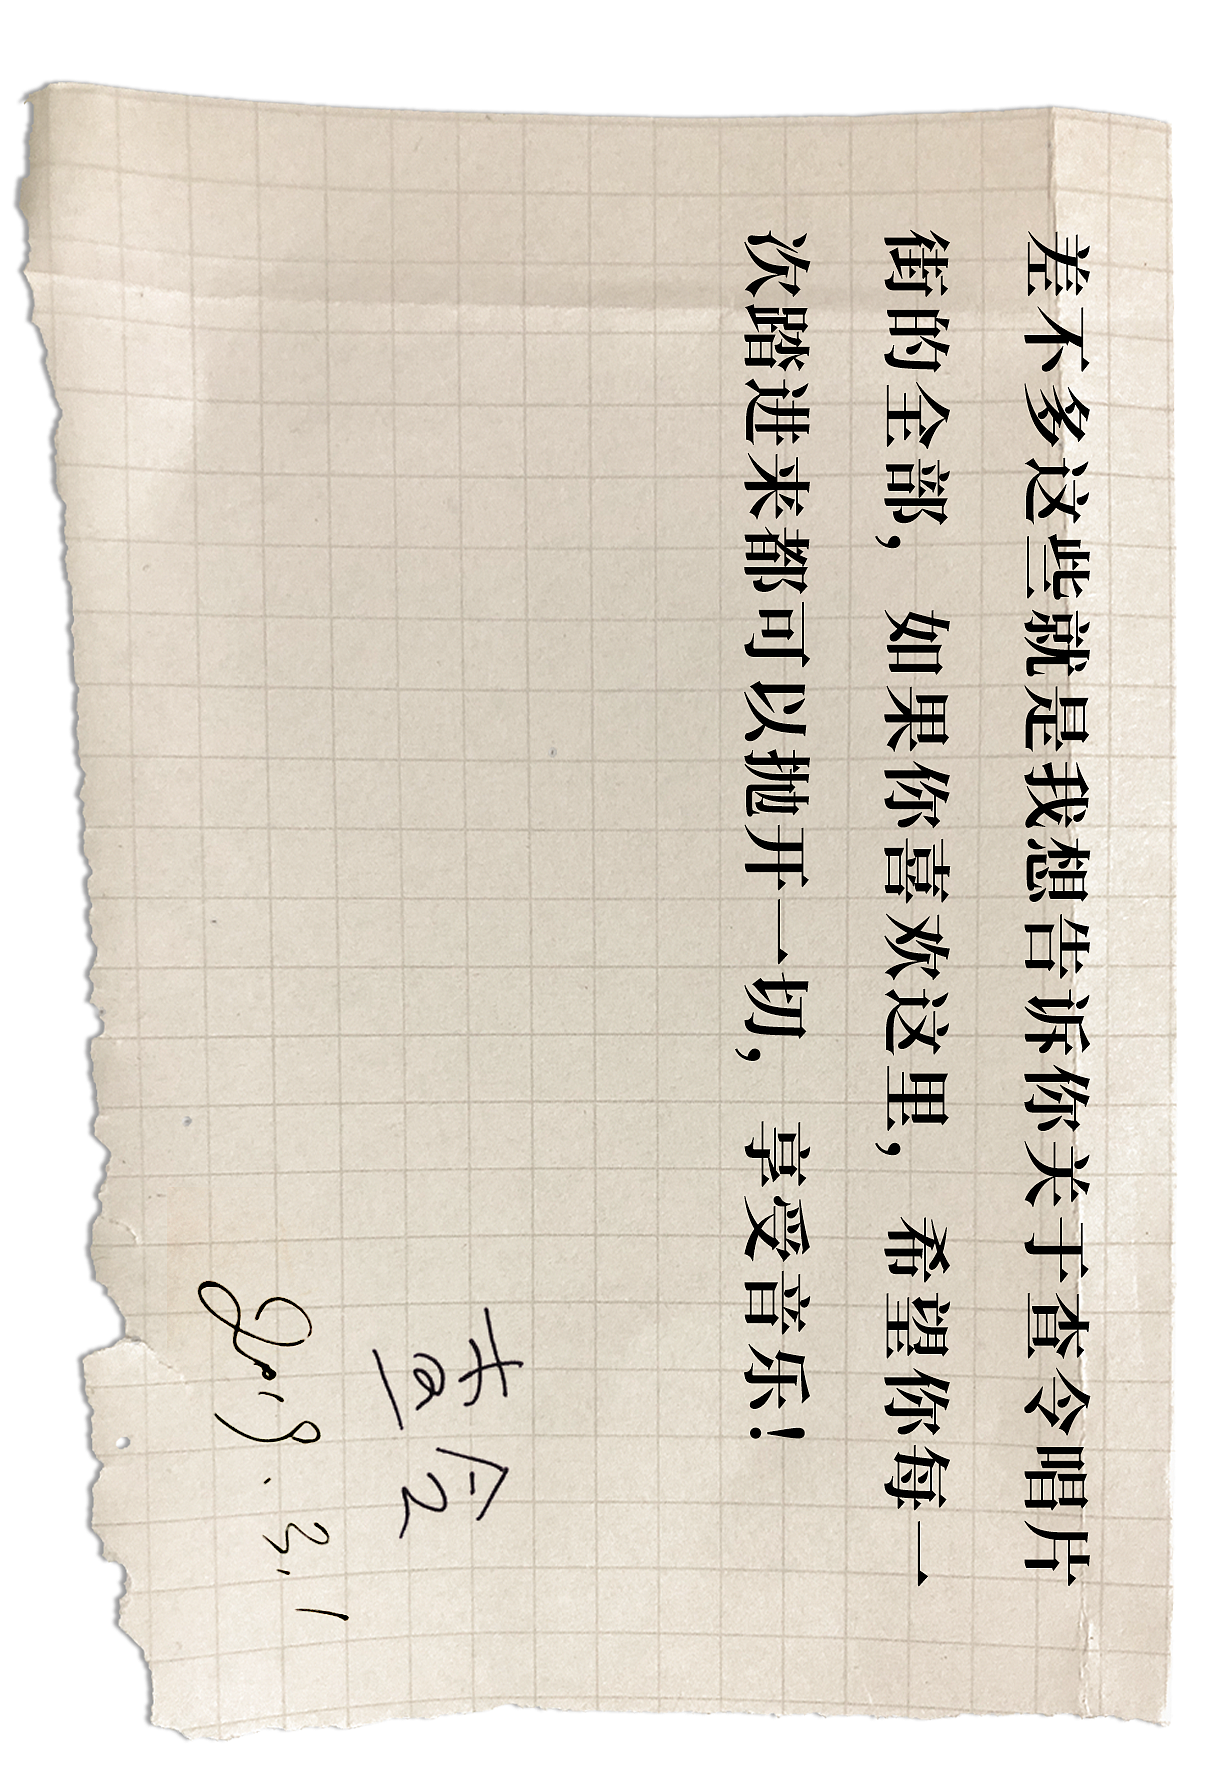 差不多这些就是我想告诉你关于查令唱片
街的全部，如果你喜欢这里，希望你每一
次踏进来都可以抛开一切，享受音乐！
查令
2019.3.1